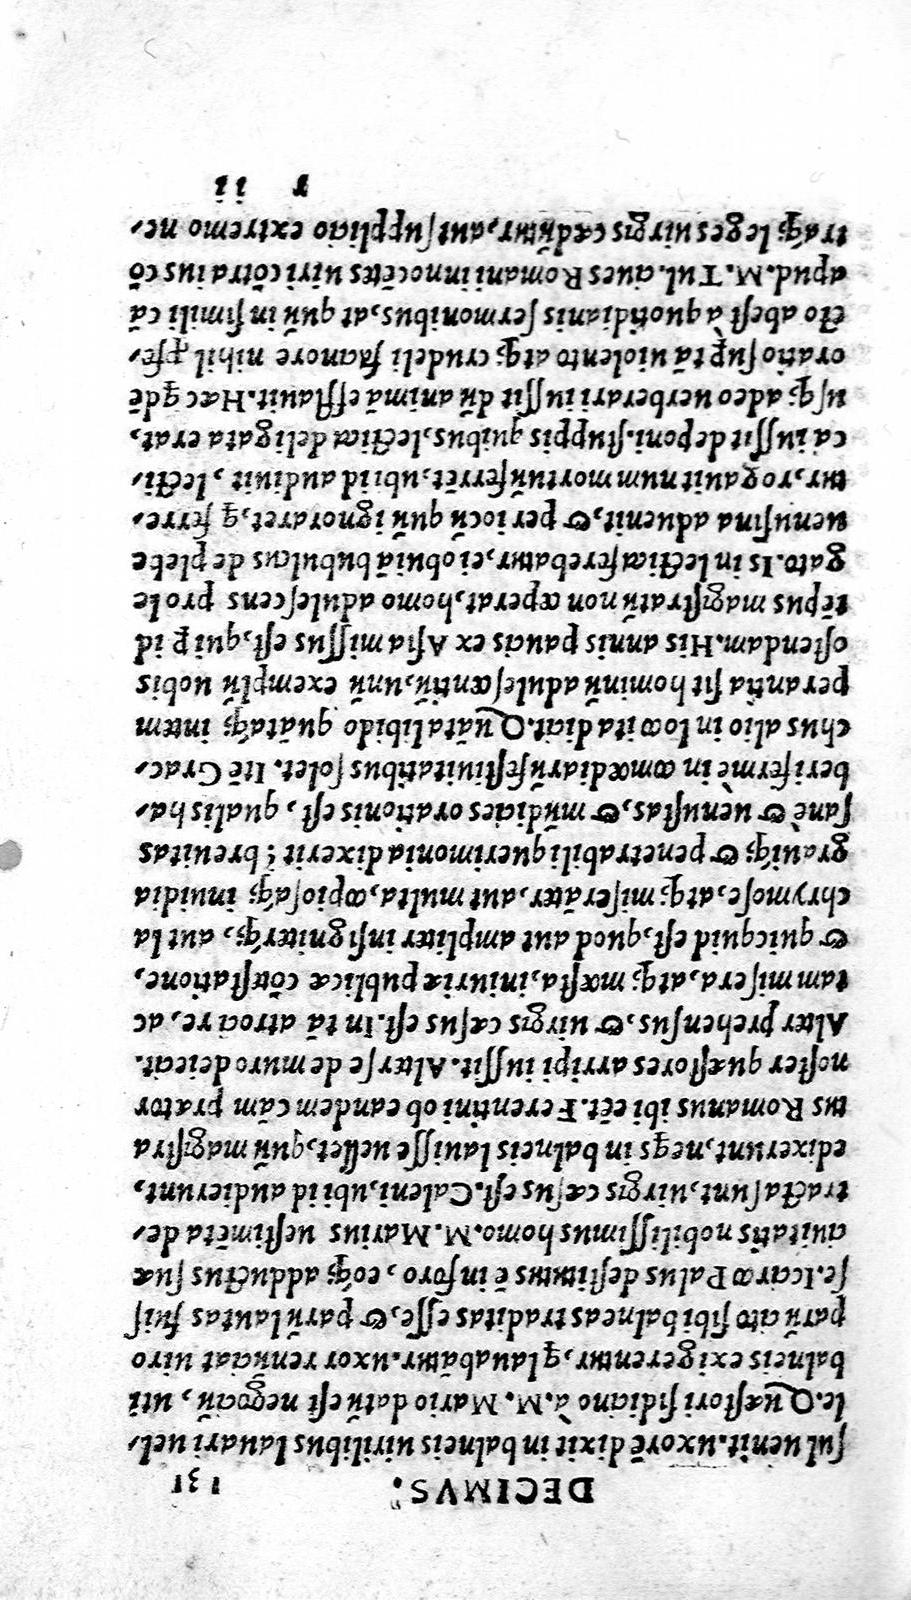 DECIMVS. 131
ſul uenit. uxorē dixit in balneis uirilibus lauari uel-
le. Quæſtori ſidiciano à. M. Mario datū eſt negociū, uti
balneis exigerentur, q lauabātur. uxor renūciat uiro
parū cito ſibi balneas traditas eſſe, & parū lautas fuiſ
ſe. Icarco Palus deſtitutus ē in foro, eoq́; adductus ſuæ
ciuitatis nobiliſſimus homo. M. Marius ueſtimēta de-
tracta ſunt, uirgis cæſus eſt. Caleni, ubi id audierunt,
edixerunt, neqs in balneis lauiſſe uellet, quū magiſtra
tus Romanus ibi eēt. Ferentini ob eandem cām prætor
noſter quæſtores arripi iuſſit. Alter ſe de muro deiecit.
Alter prehenſus, & uirgis cæſus eſt. In tā atroci re, ac
tam miſera, atq; mœſta, iniuriæ publicæ cōteſtatione,
& quicquid eſt, quod aut ampliter inſigniterq́;, aut la
chrymoſe, atq; miſeräter, aut multa, copioſaq́; inuidia
grauiq́; & penetrabili querimonia dixerit; breuitas
ſanè & uenuſtas, & mūdicies orationis eſt, qualis ha-
beri fermè in comœdiarū feſtiuitatibus ſolet. Itē Grac-
chus alio in loco ita dicit. Quāta libido quātaq́; intem
perantia ſit hominū adulęſcentiū, unū exemplū uobis
oſtendam. His annis paucis ex Aſia miſſus eſt, qui ꝑ id
tēpus magiſtratū non cœperat, homo adulęſcens pro le
gato. Is in lectica ferebatur, ei obuiā bubulcus de plebe
uenuſina aduenit, & per iocū quū ignoraret, q ferre-
tur, rogauit num mortuū ferrēt. ubi id audiuit, lecti-
ca iuſſit deponi. ſtuppis quibus, lectica deligata erat,
uſq; adeo uerberari iuſſit dū animā efflauit. Hæc qdē
oratio ſuꝑ tā uiolento atq; crudeli facinore nihil ꝓfe-
cto abeſt à quotidianis ſermonibus, at quū in ſimili cā
apud. M. Tul. ciues Romani innocētes uiri cōtra ius cō
traq́; leges uirgis cædūtur, aut ſupplicio extremo ne-
r ii